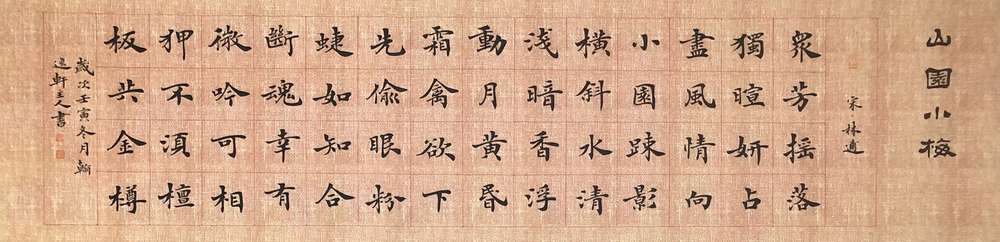 山園小梅
宋林逋
衆芳摇落
獨暄妍占
盡風情向
小園疎影
橫斜水清
淺暗香浮
動月黄昏
霜禽欲下
先偷眼粉
蝶如知合
斷魂幸有
微吟可相
狎不須檀
板共金樽
歲次壬寅冬月翰
逸軒主人書